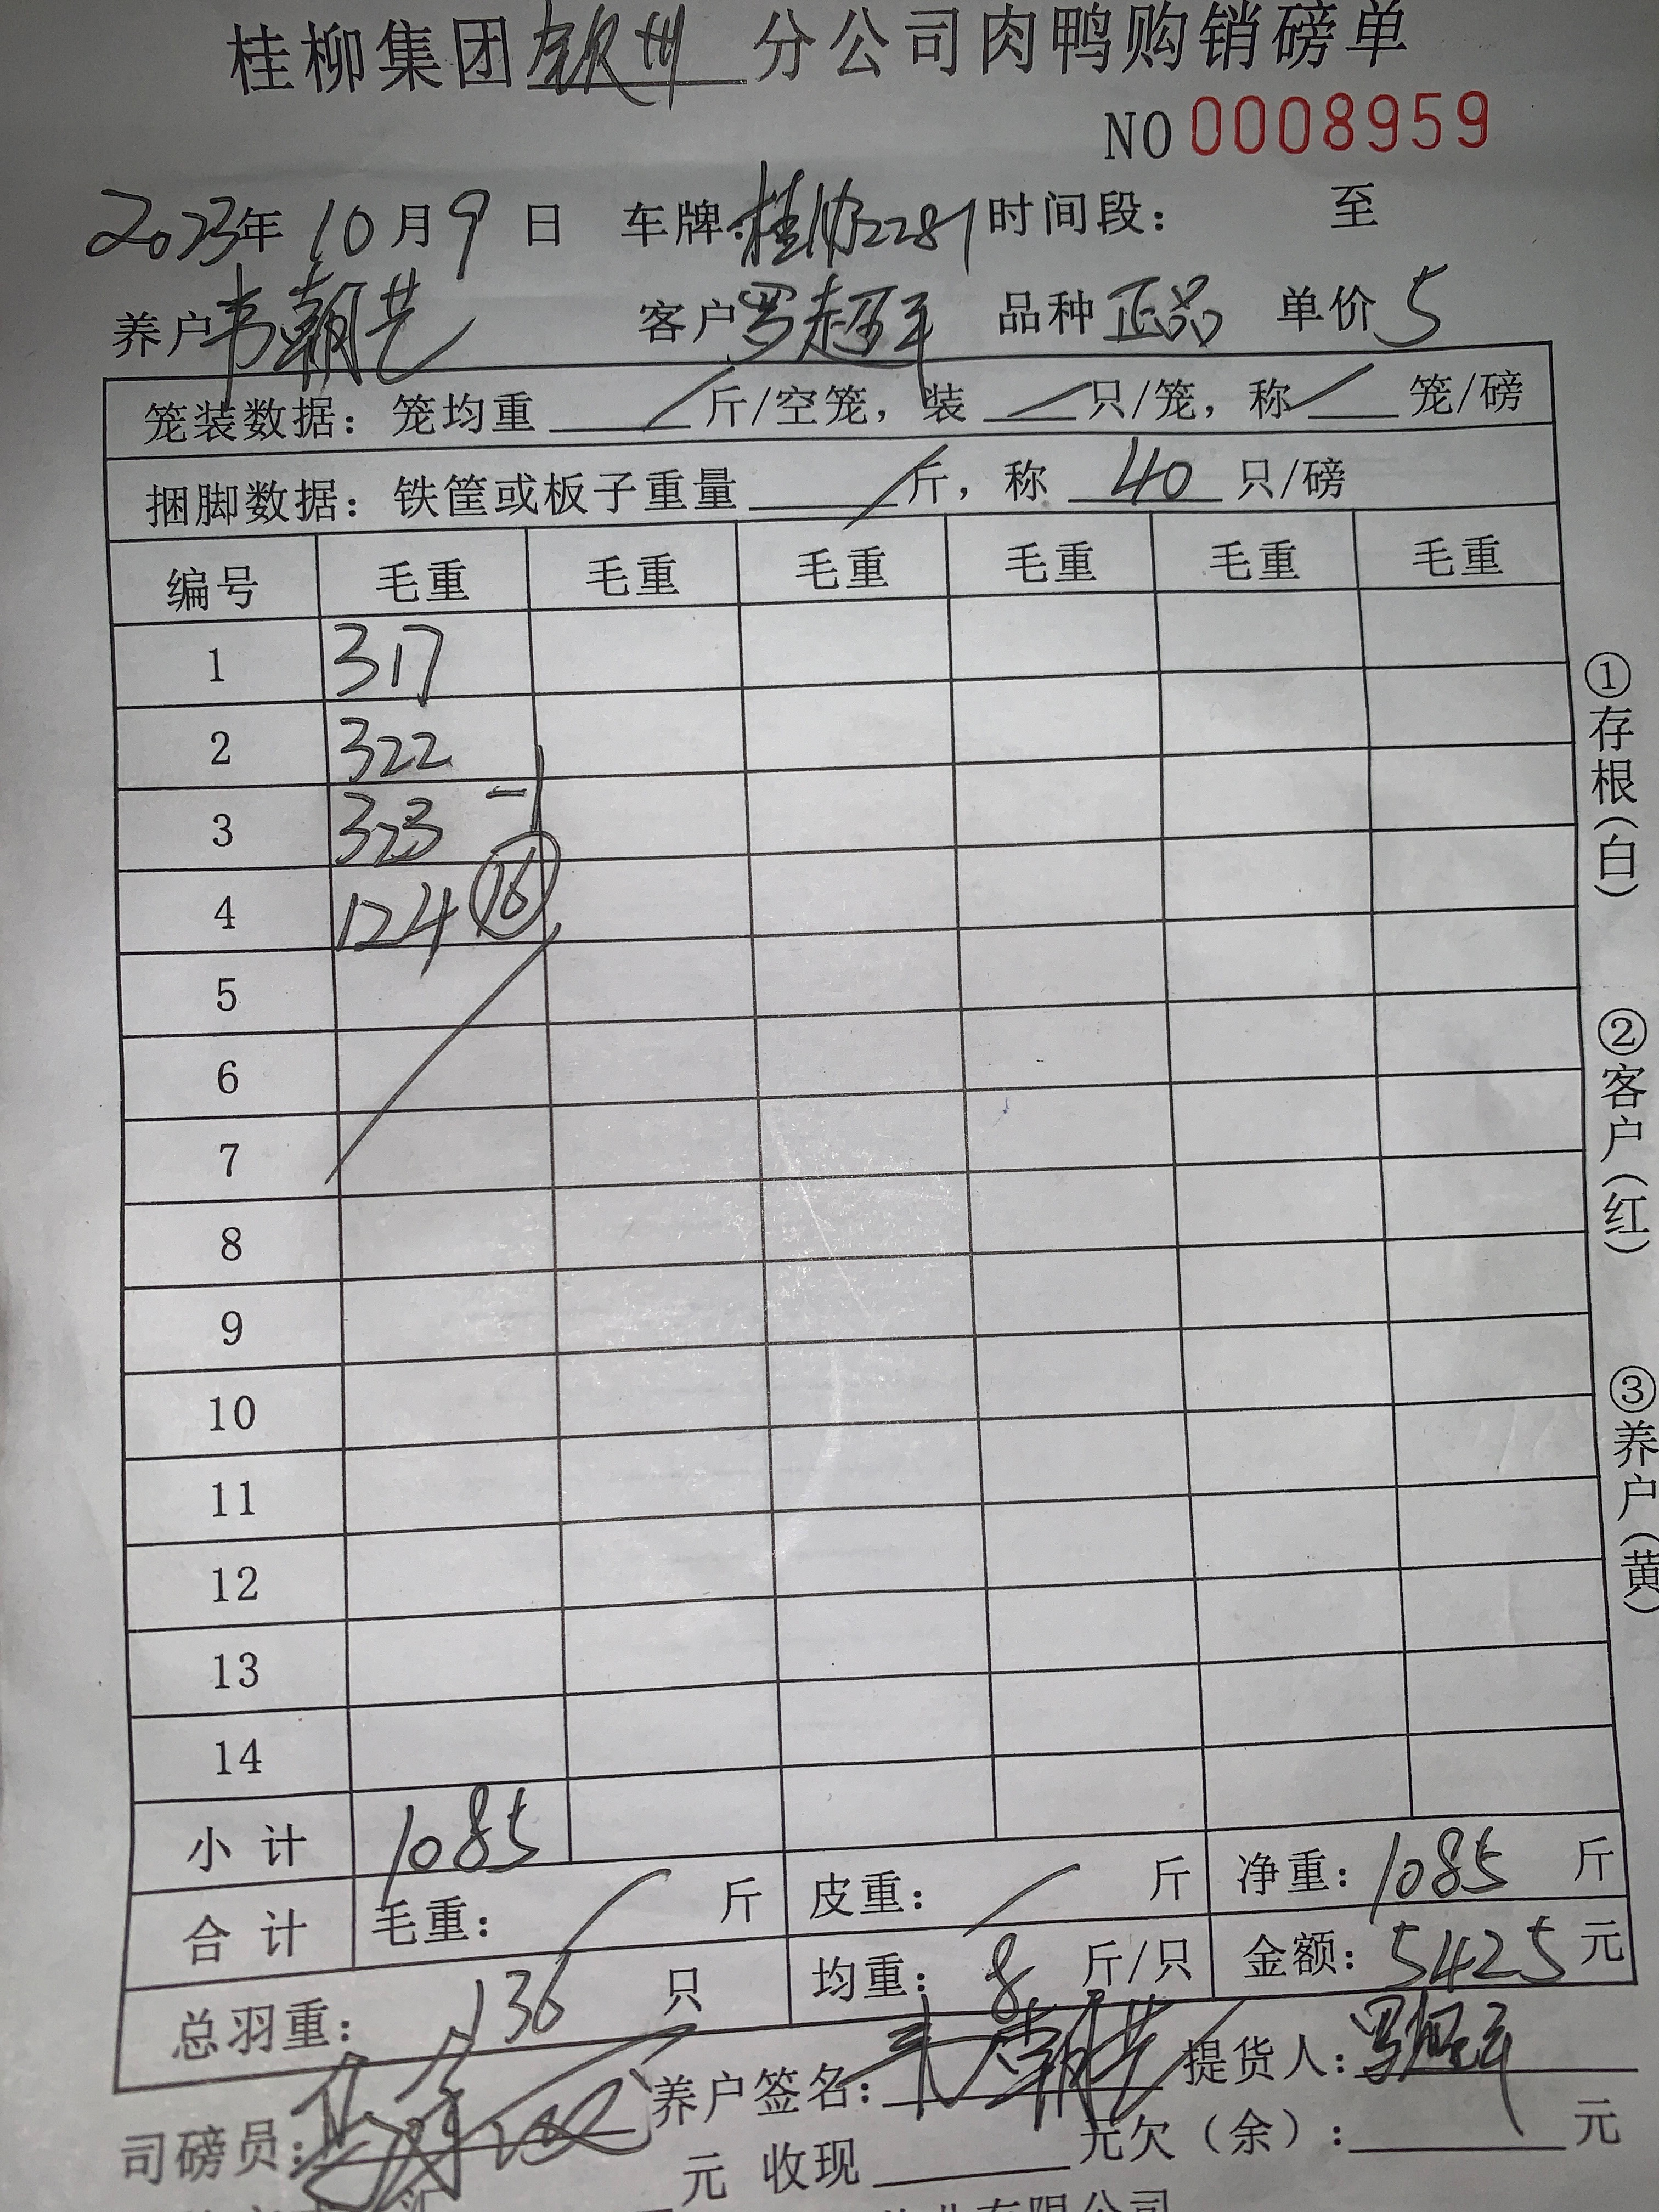 桂柳集团 钦州 分公司肉鸭购销磅单
NO 0008959
2023年 10 月 9 日 车牌: 时间段: 至
养户 韦朝艺 客户 罗超平 品种 正品 单价 5
笼装数据: 笼均重 / 斤/空笼, 装 / 只/笼, 称 / 笼/磅
捆脚数据: 铁筐或板子重量 / 斤, 称 40 只/磅
编号 毛重 毛重 毛重 毛重 毛重 毛重
1 317
2 322
3 323 -1
4 124 ⑯
5
6
7
8
9
10
11
12
13
14
小计 1085
合计 毛重: / 斤 皮重: / 斤 净重: 1085 斤
总羽重: 136 只 均重: 8 斤/只 金额: 5425 元
司磅员: 养户签名: 韦朝艺 提货人: 罗超平
元 收现 元欠(余): 元
①存根(白)
②客户(红)
③养户(黄)